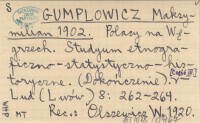 S GUMPLOWICZ Maksy-
milian 1902. Polacy na Wę-
grzech. Studyum etnogra-
ficzno-statystyczno-his-
toryczne. (Dokończenie).
Lud (Lwów) 8: 262-269.
MT Rec.: Olszewicz W. 1920.